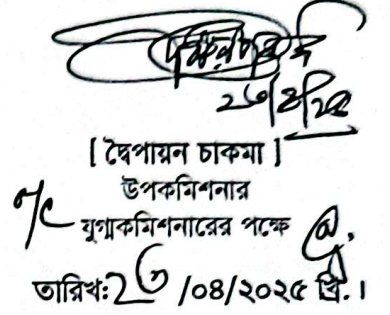 ২৩/৪/২৫
[ দ্বৈপায়ন চাকমা ]
উপকমিশনার
যুগ্মকমিশনারের পক্ষে
তারিখ: ২৩ /০৪/২০২৫ খ্রি.।